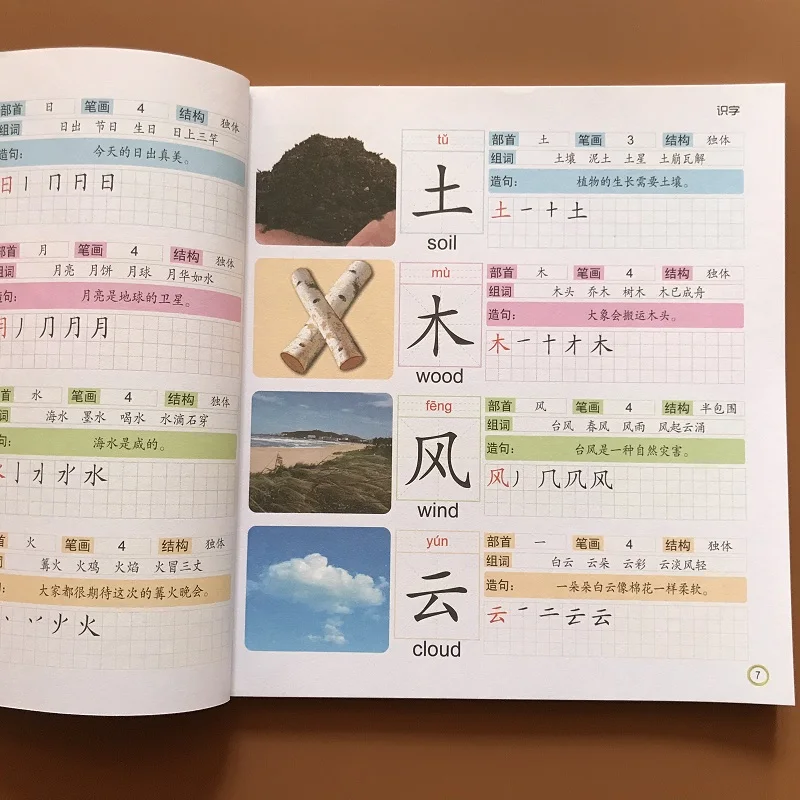 部首 日 笔画 4 结构 独体
组词 日出 节日 生日 日上三竿
造句: 今天的日出真美。
日 丨 冂 日 日
部首 月 笔画 4 结构 独体
组词 月亮 月饼 月球 月华如水
造句: 月亮是地球的卫星。
月 丿 冂 月 月
首 水 笔画 4 结构 独体
词 海水 墨水 喝水 水滴石穿
句: 海水是咸的。
水 亅 水 水
首 火 笔画 4 结构 独体
词 篝火 火鸡 火焰 火冒三丈
句: 大家都很期待这次的篝火晚会。
丶 丷 火 火
识字
tǔ
土
soil
部首 土 笔画 3 结构 独体
组词 土壤 泥土 土星 土崩瓦解
造句: 植物的生长需要土壤。
土 一 十 土
mù
木
wood
部首 木 笔画 4 结构 独体
组词 木头 乔木 树木 木已成舟
造句: 大象会搬运木头。
木 一 十 才 木
fēng
风
wind
部首 风 笔画 4 结构 半包围
组词 台风 春风 风雨 风起云涌
造句: 台风是一种自然灾害。
风 丿 几 凤 风
yún
云
cloud
部首 一 笔画 4 结构 独体
组词 白云 云朵 云彩 云淡风轻
造句: 一朵朵白云像棉花一样柔软。
云 一 二 云 云
7